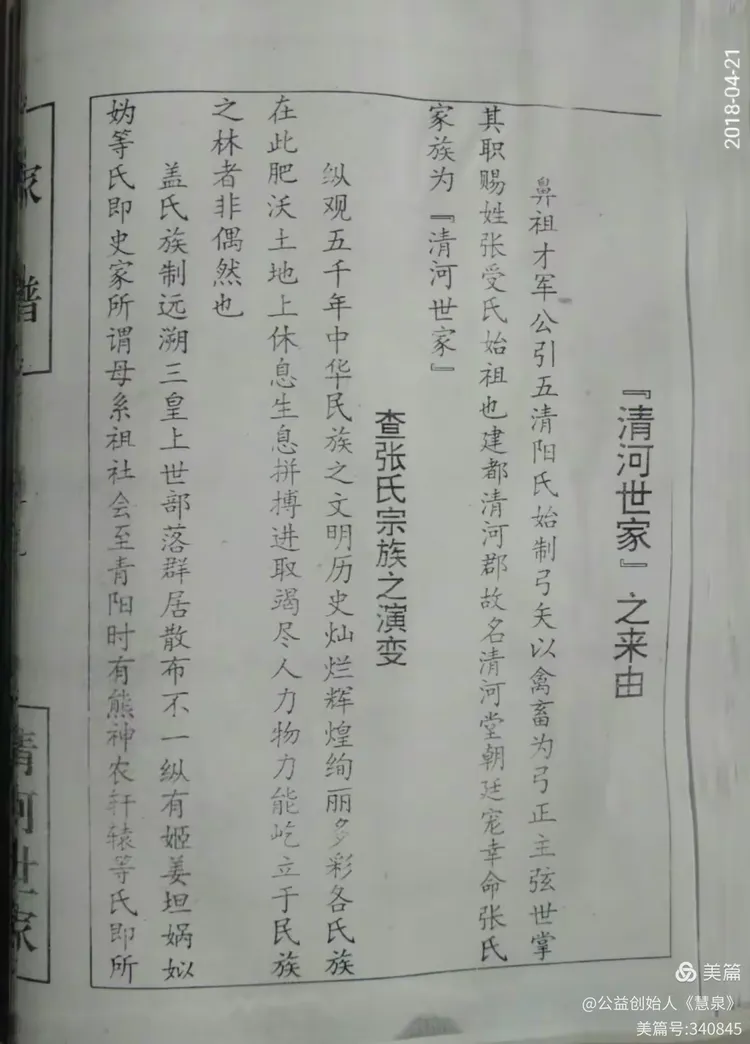 『清河世家』之来由
鼻祖才军公引五清阳氏始制弓矢以禽畜为弓正主弦世掌
其职赐姓张受氏始祖也建都清河郡故名清河堂朝廷宠幸命张氏
家族为『清河世家』
查张氏宗族之演变
纵观五千年中华民族之文明历史灿烂辉煌绚丽多彩各氏族
在此肥沃土地上休息生息拼搏进取竭尽人力物力能屹立于民族
之林者非偶然也
盖氏族制远溯三皇上世部落群居散布不一纵有姬姜坦娲姒
妫等氏即史家所谓母系祖社会至青阳时有熊神农轩辕等氏即所
家谱
清河世家
2018-04-21
美篇
@公益创始人《慧泉》
美篇号:340845